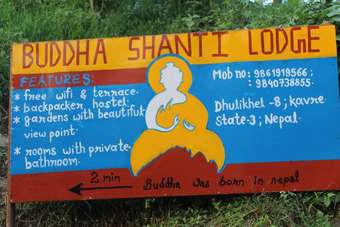 BUDDHA SHANTI LODGE
FEATURES:
* free wifi & terrace.
* backpacker hostel.
* gardens with beautiful
view point.
* rooms with private
bathroom.
Mob no: 9861919566;
9840738855.
Dhulikhel -8; kavre
State-3; Nepal.
2 min
Buddha was born in nepal